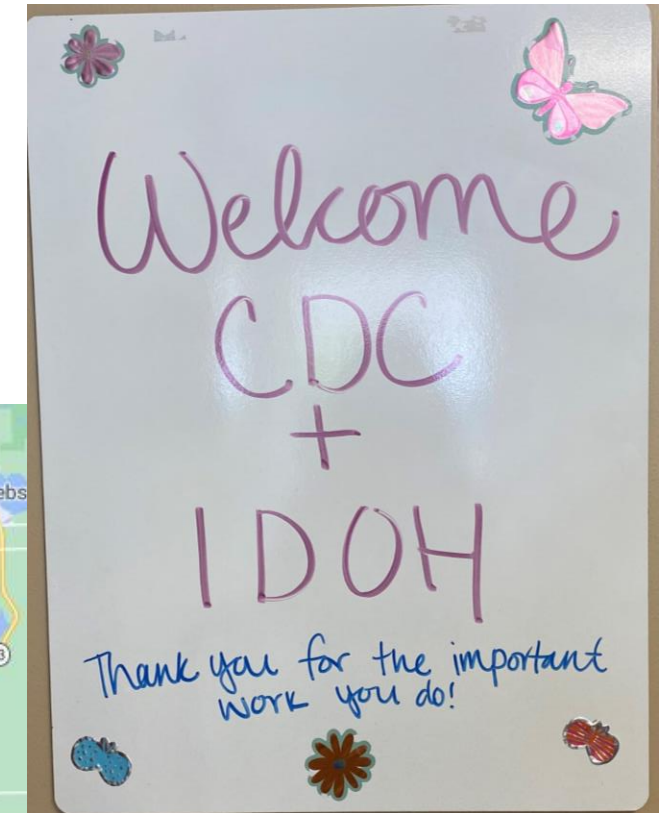 Welcome
CDC
+
IDOH
Thank you for the important
work you do!